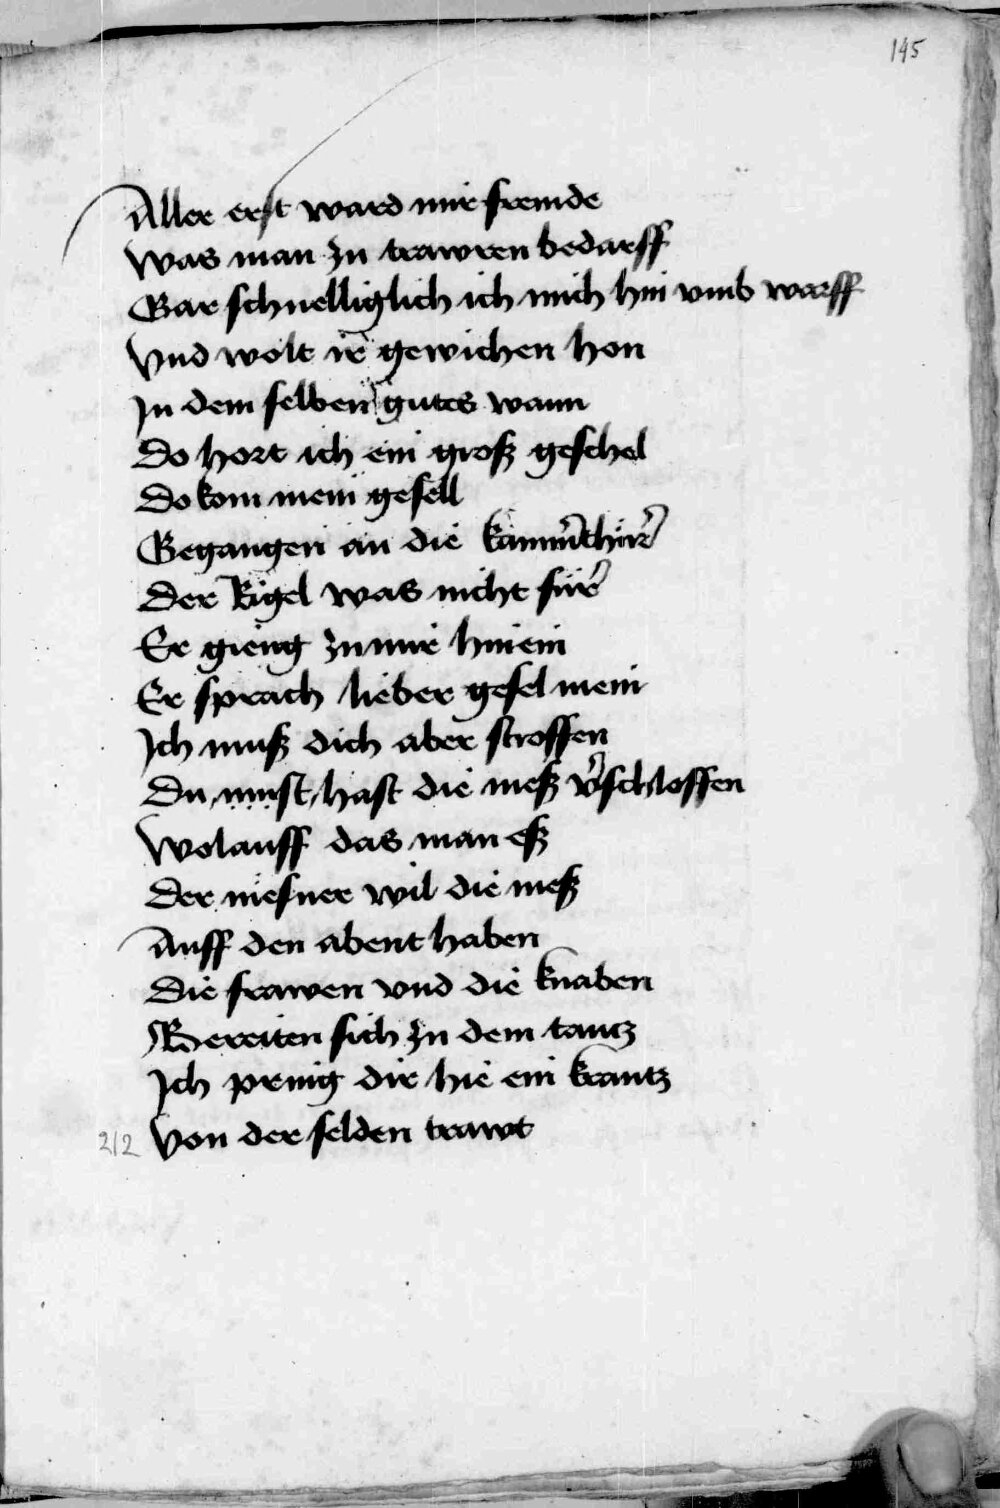 145
Aller erst ward mir fremde
Was man zu trawren bedarff
Gar schnelliglich ich mich hin vmb warff
Vnd wolt ir gewichen hon
In dem selben gutes wann
Do hort ich ein groß geschel
Do kom mein gesell
Gegangen an die kamm̄thür
Der Rigel was nicht für
Er gieng zu mir hinein
Er sprach lieber gesel mein
Ich muß dich aber stroffen
Du must hast die meß v̄schloffen
Wolauff das man eß
Der mesner wil die meß
Auff den abent haben
Die frawen vnd die knaben
Bereiten sich zu dem tantz
Ich pring dir hie ein krantz
212 Von der selden trawt